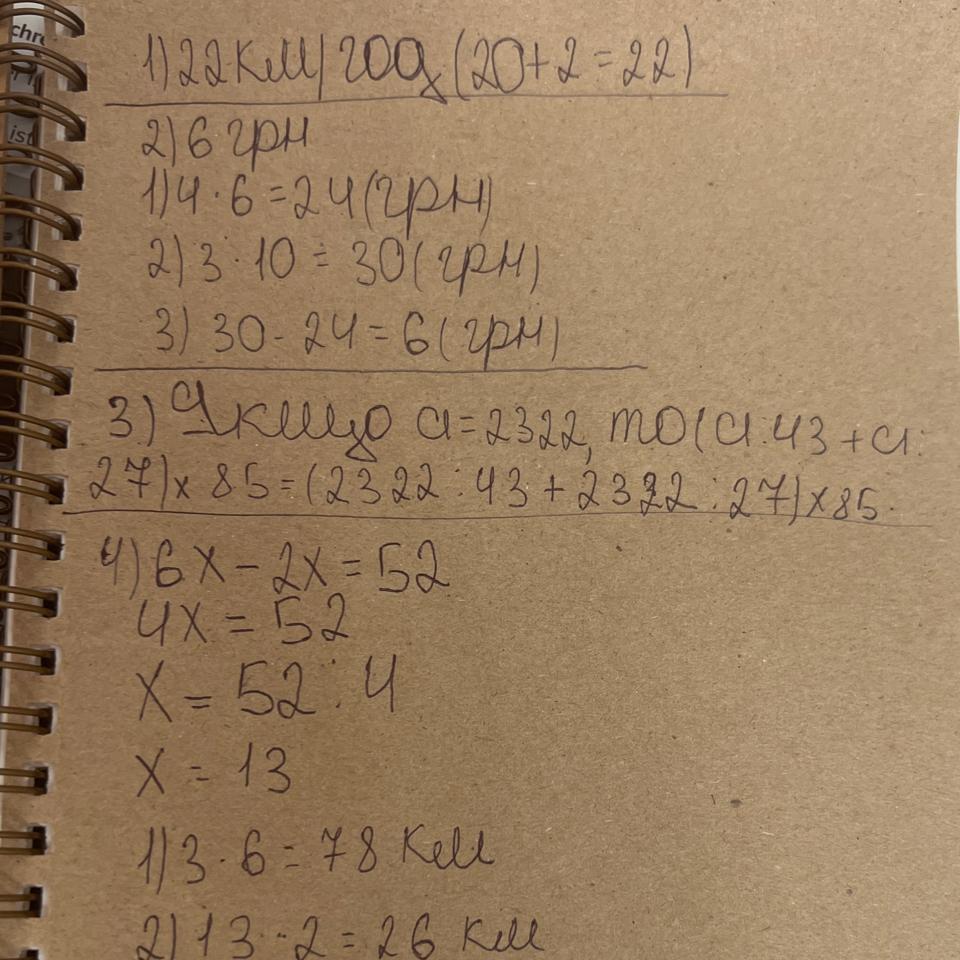 chre
ist
1) 22 км/год (20+2=22)
2) 6 грн
1) 4·6=24 (грн)
2) 3·10=30 (грн)
3) 30-24=6 (грн)
3) Якщо a=2322, то (a:43+a:
27)x85=(2322:43+2322:27)x85.
4) 6x-2x=52
4x=52
x=52:4
x=13
1) 3·6=78 км
2) 13·2=26 км